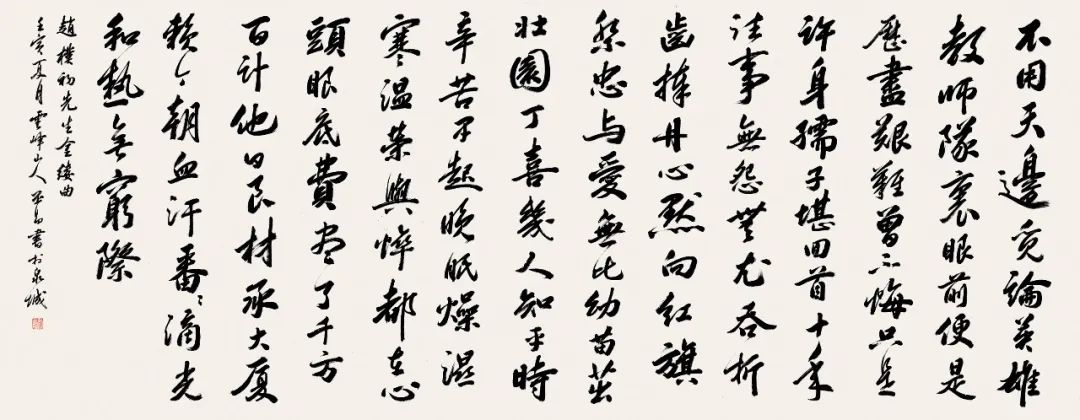 不用天邊覓論英雄
教師隊裏眼前便是
歷盡艱難曾不悔只是
許身孺子堪回首十年
往事無怨無尤吞折
齒捧丹心默向紅旗
祭忠与愛無比幼苗茁
壯園丁喜幾人知平時
辛苦早起晚眠燥濕
寒溫榮與悴都在心
頭眼底費尽了千方
百計他日良材承大廈
賴今朝血汗番々滴光
和熱无窮際
趙樸初先生金縷曲
壬寅夏月雲峰山人書於泉城